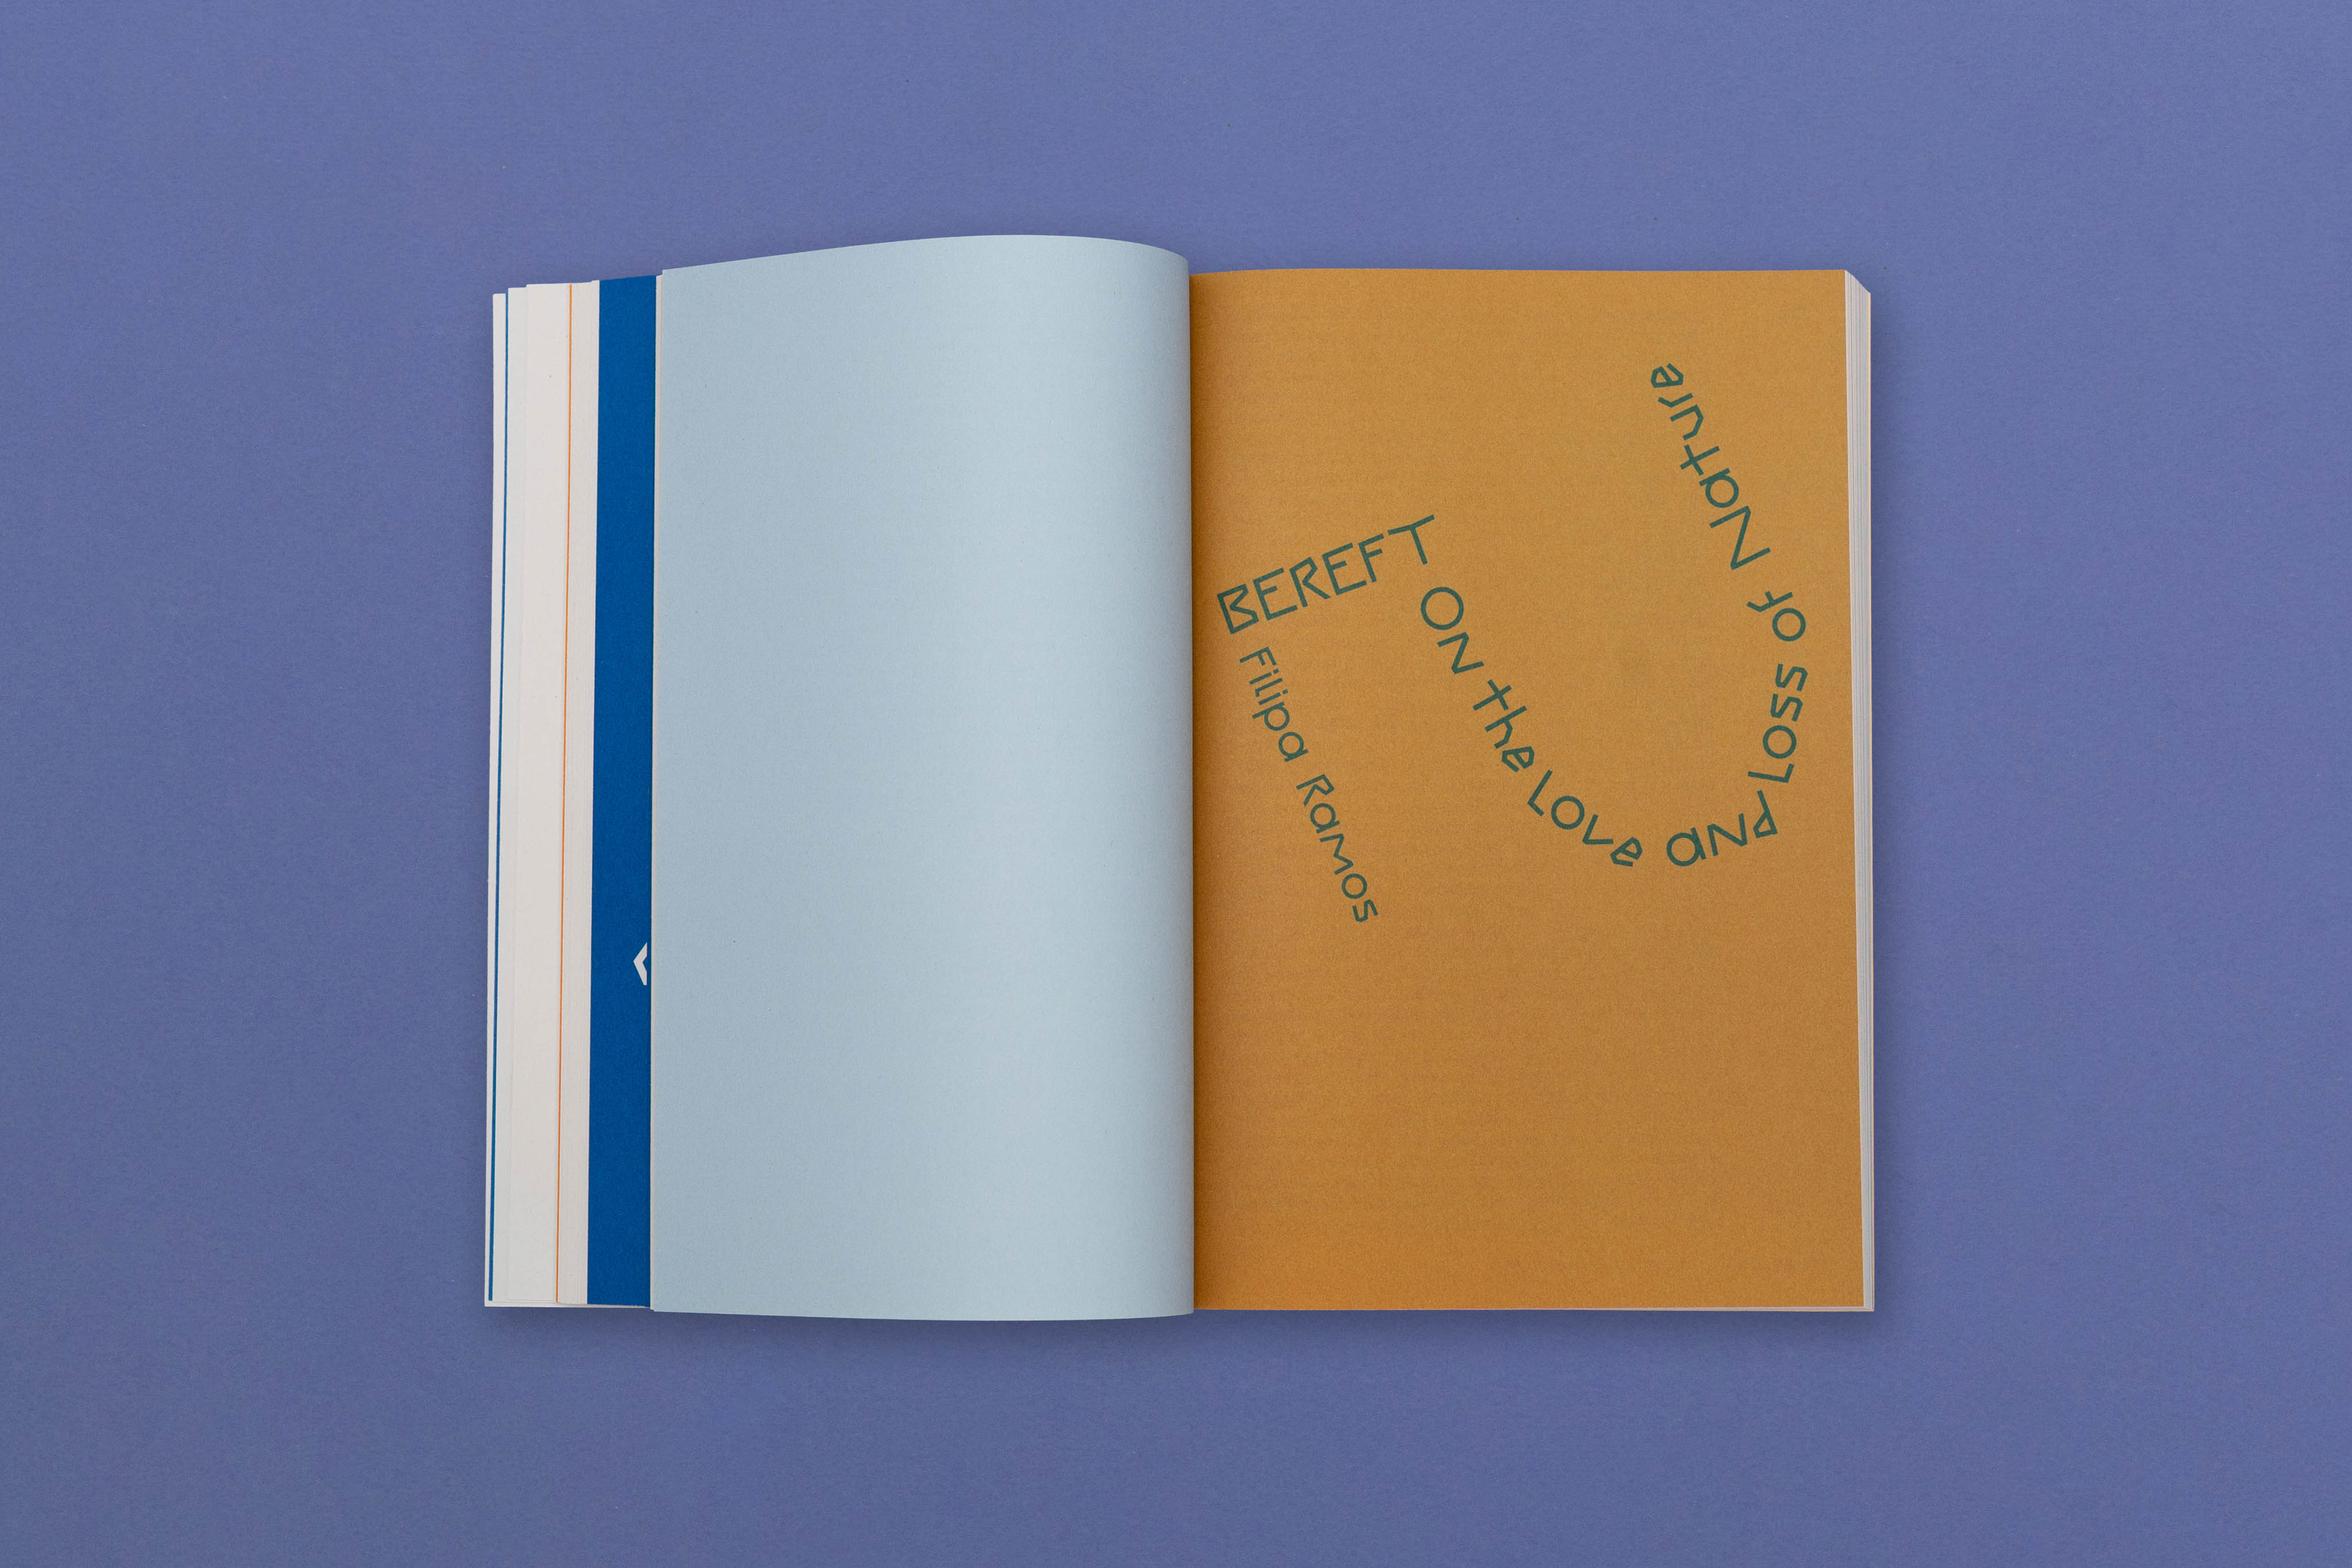 BEREFT ON the Love and Loss of Nature
Filipa Ramos